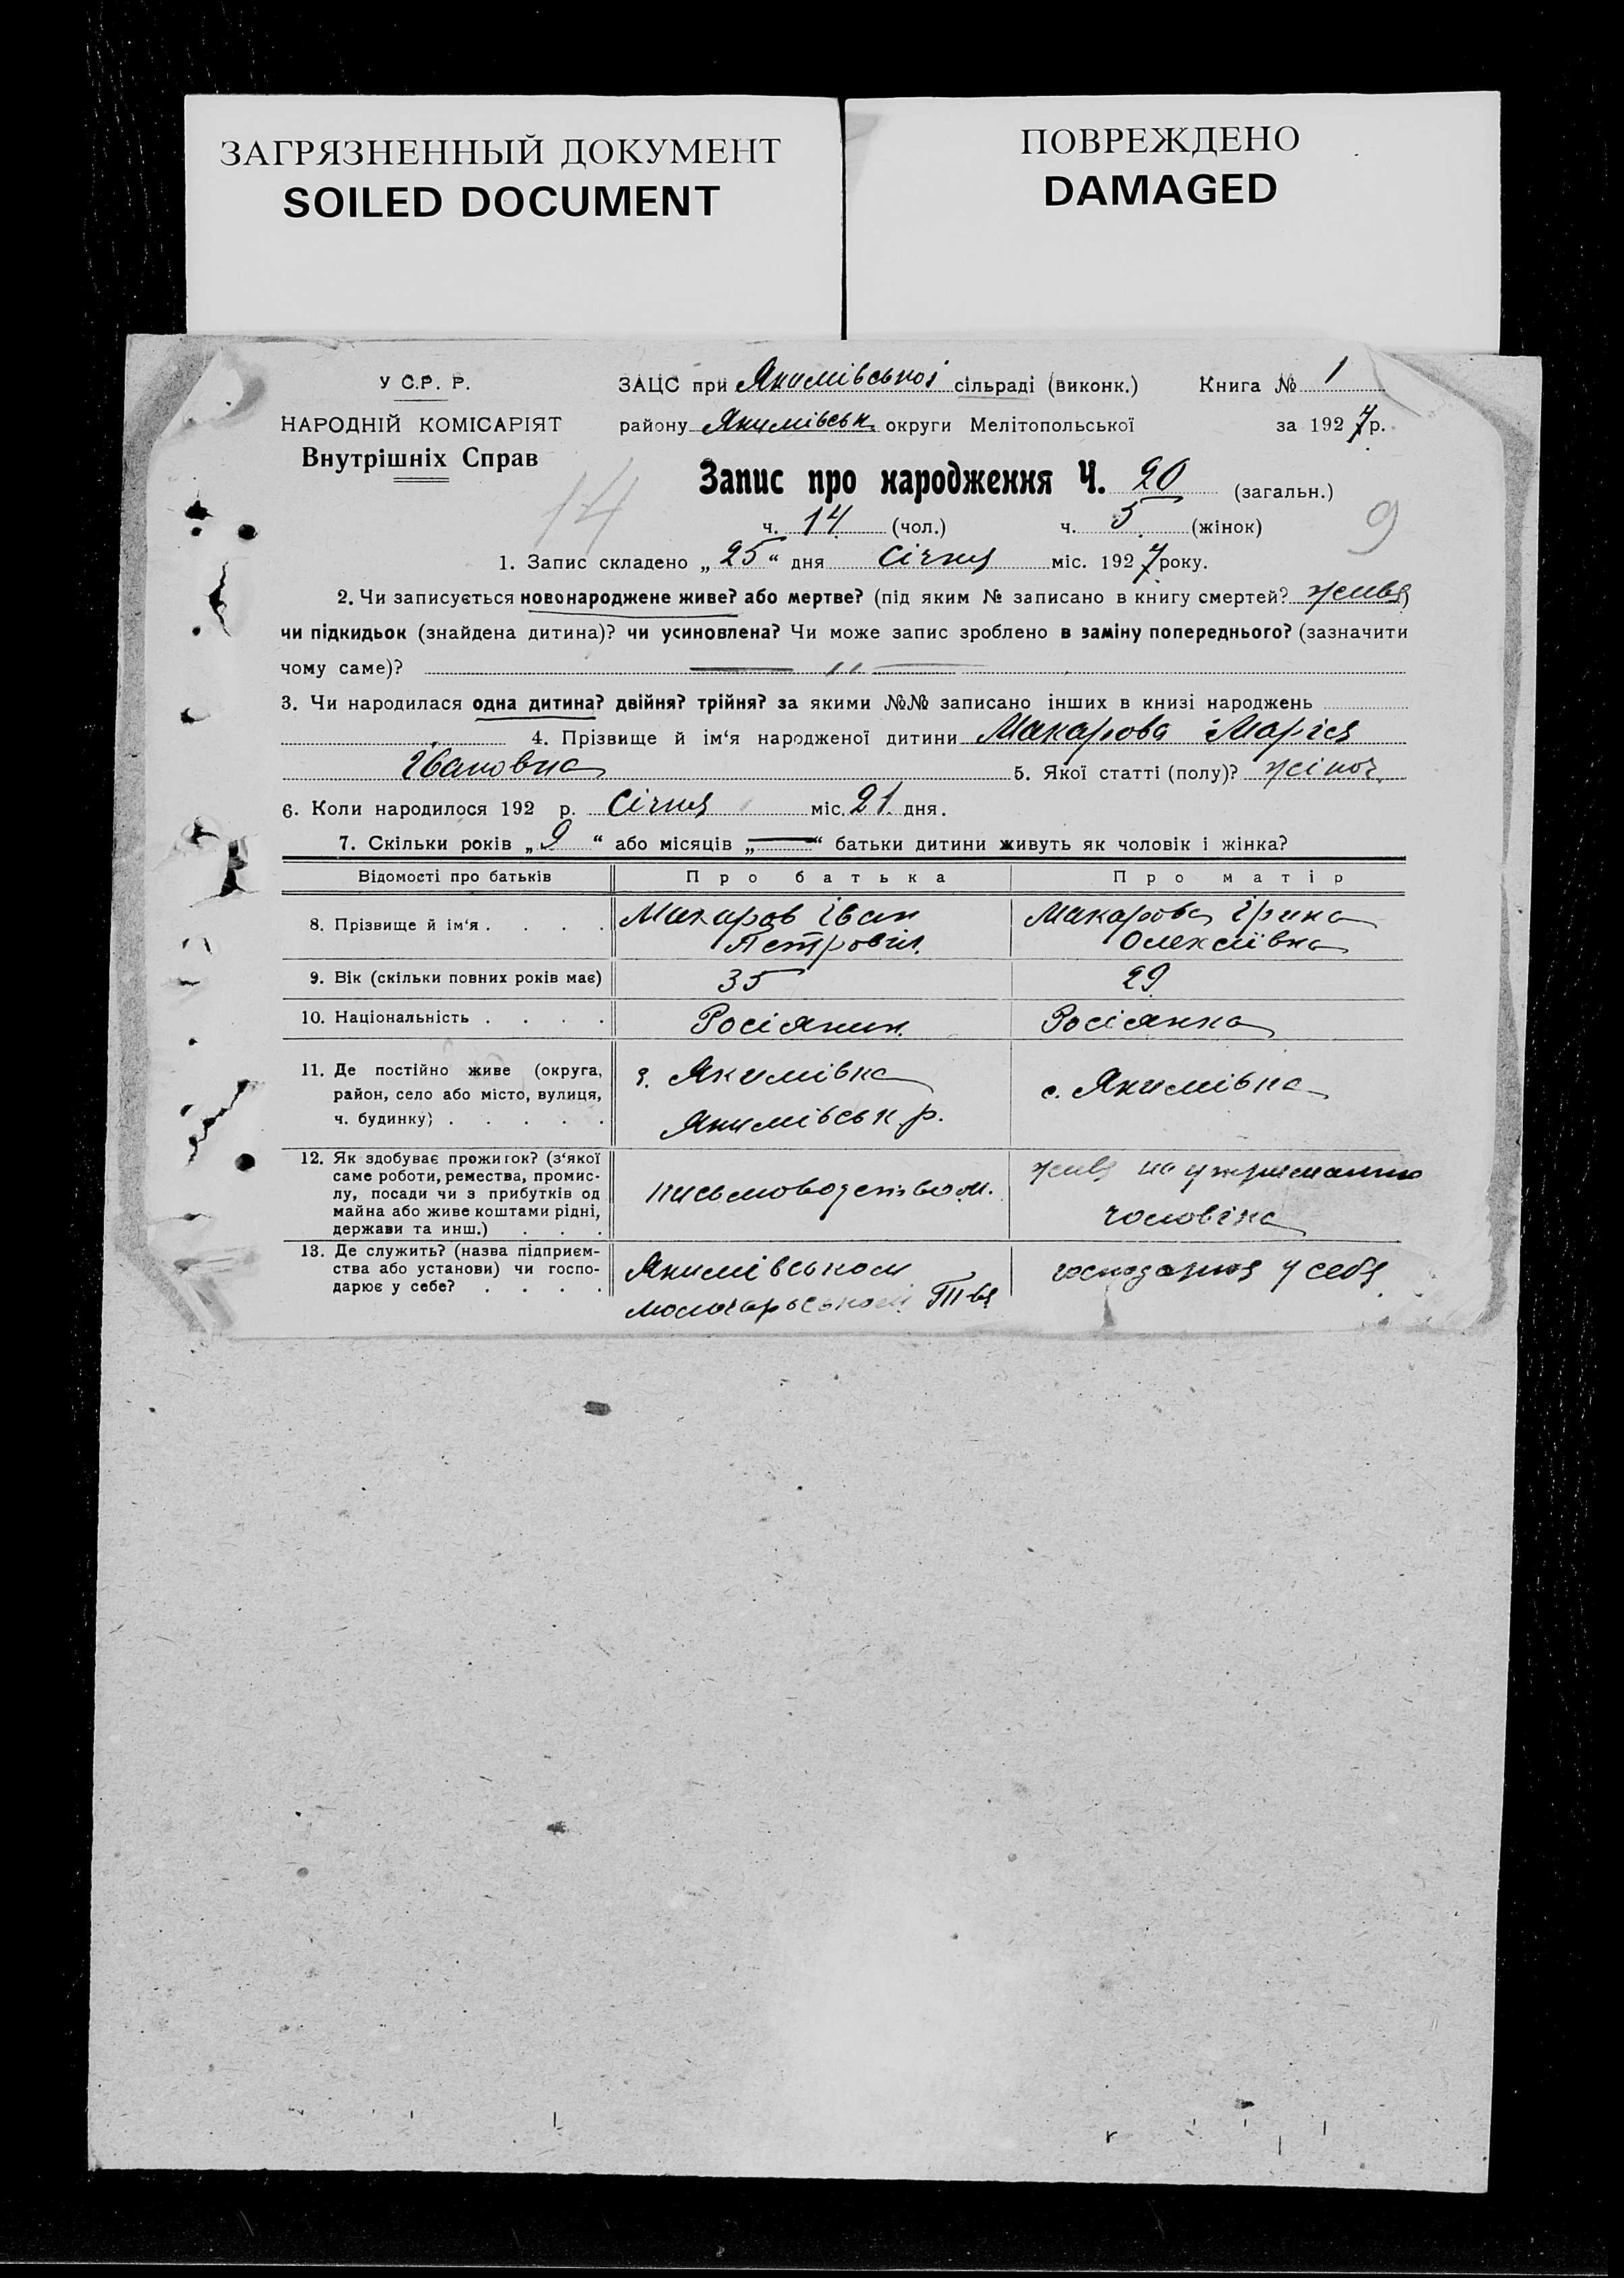 ЗАГРЯЗНЕННЫЙ ДОКУМЕНТ
SOILED DOCUMENT
ПОВРЕЖДЕНО
DAMAGED
У С.Р. Р.
НАРОДНІЙ КОМІСАРІЯТ
Внутрішніх Справ
ЗАЦС при Якимівської сільраді (виконк.) Книга № 1
району Якимівськ. округи Мелітопольської за 1927 р.
Запис про народження Ч. 20 (загальн.)
14
ч. 14 (чол.) ч. 5 (жінок)
9
1. Запис складено „ 25 “ дня Січня міс. 1927 року.
2. Чи записується новонароджене живе? або мертве? (під яким № записано в книгу смертей? живе)
чи підкидьок (знайдена дитина)? чи усиновлена? Чи може запис зроблено в заміну попереднього? (зазначити
чому саме)? — „ —
3. Чи народилася одна дитина? двійня? трійня? за якими №№ записано інших в книзі народжень
4. Прізвище й ім‘я народженої дитини Макарова Марія
Івановна 5. Якої статті (полу)? жіноч.
6. Коли народилося 192 р. Січня міс. 21 дня.
7. Скільки років „ 9 “ або місяців „ — “ батьки дитини живуть як чоловік і жінка?
Відомості про батьків Про батька Про матір
8. Прізвище й ім‘я . . . . Макаров Іван Макарова Ірина
Петровіч. Олексіївна
9. Вік (скільки повних років має) 35 29
10. Національність . . . . Росіянин. Росіянка
11. Де постійно живе (округа, с. Якимівка с. Якимівка
район, село або місто, вулиця,
ч. будинку) . . . . . Якимівськ р.
12. Як здобуває прожиток? (з‘якої
саме роботи, ремества, промис-
лу, посади чи з прибутків од
майна або живе коштами рідні,
держави та инш.) . . . письмоводством. живе на утриманню
чоловіка
13. Де служить? (назва підприєм-
ства або установи) чи госпо-
дарює у себе? . . . . Якимівськом господарює у себе.
молочарськом Т-ві